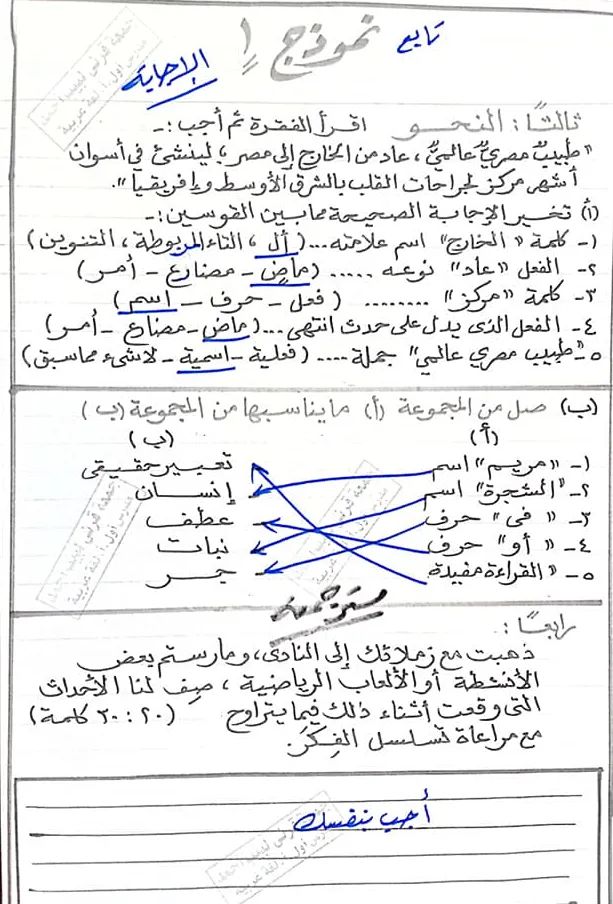 تابع نموذج ١
الإجابة
ثالثًا: النحو اقرأ الفقرة ثم أجب :-
"طبيبٌ مصريٌّ عالميٌّ، عاد من الخارج إلى مصر؛ لينشئ في أسوان
أشهر مركز لجراحات القلب بالشرق الأوسط وإفريقيا".
(أ) تخير الإجابة الصحيحة مما بين القوسين:-
١- كلمة "الخارج" اسم علامته...(أل ، التاء المربوطة ، التنوين)
٢- الفعل "عاد" نوعه ..... (ماضٍ - مضارع - أمر)
٣- كلمة "مركز" ........ (فعل - حرف - اسم)
٤- الفعل الذى يدل على حدث انتهى...(ماض - مضارع - أمر)
٥- "طبيب مصري عالمي" جملة ....(فعلية - اسمية - لا شىء مما سبق)
(ب) صل من المجموعة (أ) ما يناسبها من المجموعة (ب)
(أ) (ب)
١- "مريم" اسم تعبير حقيقى
٢- "الشجرة" اسم - إنسان
٣- "فى" حرف - عطف
٤- "أو" حرف - نبات
٥- "القراءة مفيدة" - جر
مستر جمعه
رابعًا:
ذهبت مع زملائك إلى النادى، ومارستم بعض
الأنشطة أو الألعاب الرياضية ، صِف لنا الأحداث
التى وقعت أثناء ذلك فِيمَا يتراوح (٢٠ : ٣٠ كلمة)
مع مراعاة تسلسل الفِكَر.
أجب بنفسك